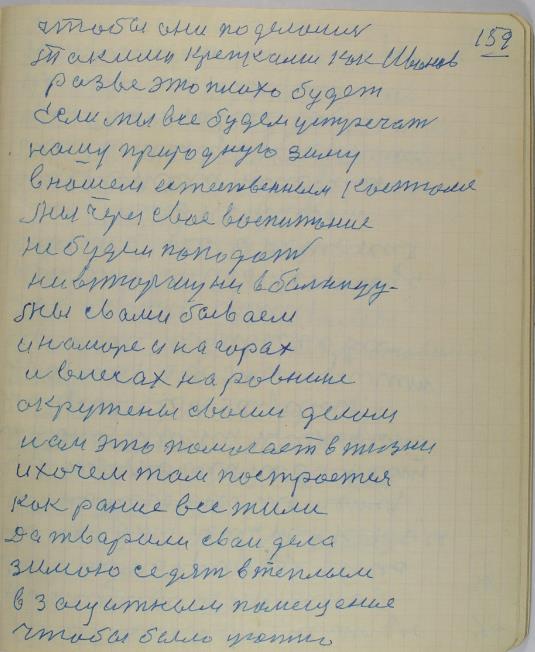 159
чтобы они поделамия
такими крепками как Иванов
разве это плохо будет
Если мы все будем устречат
нашу природную зиму
в нашем естественным костюме
мы через свое воспитание
не будем поподат
ни втюрму ни в балницу-
мы свами бываем
и на море и на горах
и влесах на ровнине
окружены своим делом
нам это помогает в жизни
и хочем там построется
как рание все жили
да тварили свои дела
зимою седят в теплым
в защитным помещение
чтобы было уютно